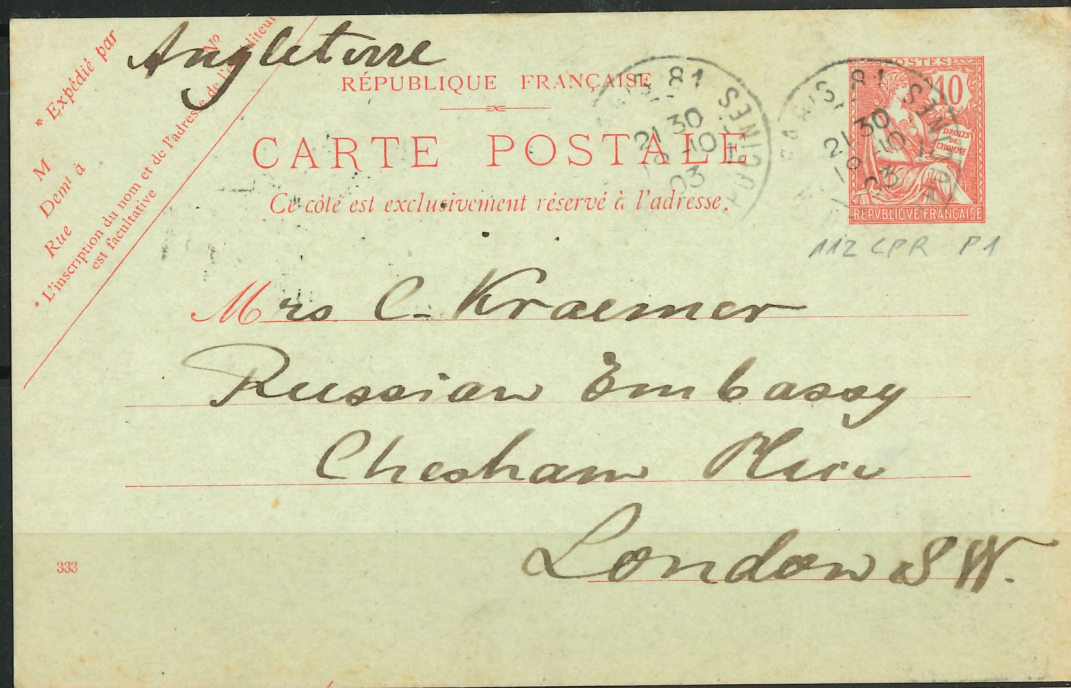 Angleterre
* Expédié par
M
Demt à
Rue
No
* L'inscription du nom et de l'adresse de l'expéditeur
est facultative
RÉPUBLIQUE FRANÇAISE
CARTE POSTALE
Ce côté est exclusivement réservé à l'adresse.
PARIS 81
21 30
18 10
03
POSTES
10
DROITS
DE
L'HOMME
REPVBLIQVE FRANÇAISE
112 CPR P1
Mrs C. Kraemer
Russian Embassy
Chesham Place
London SW.
333